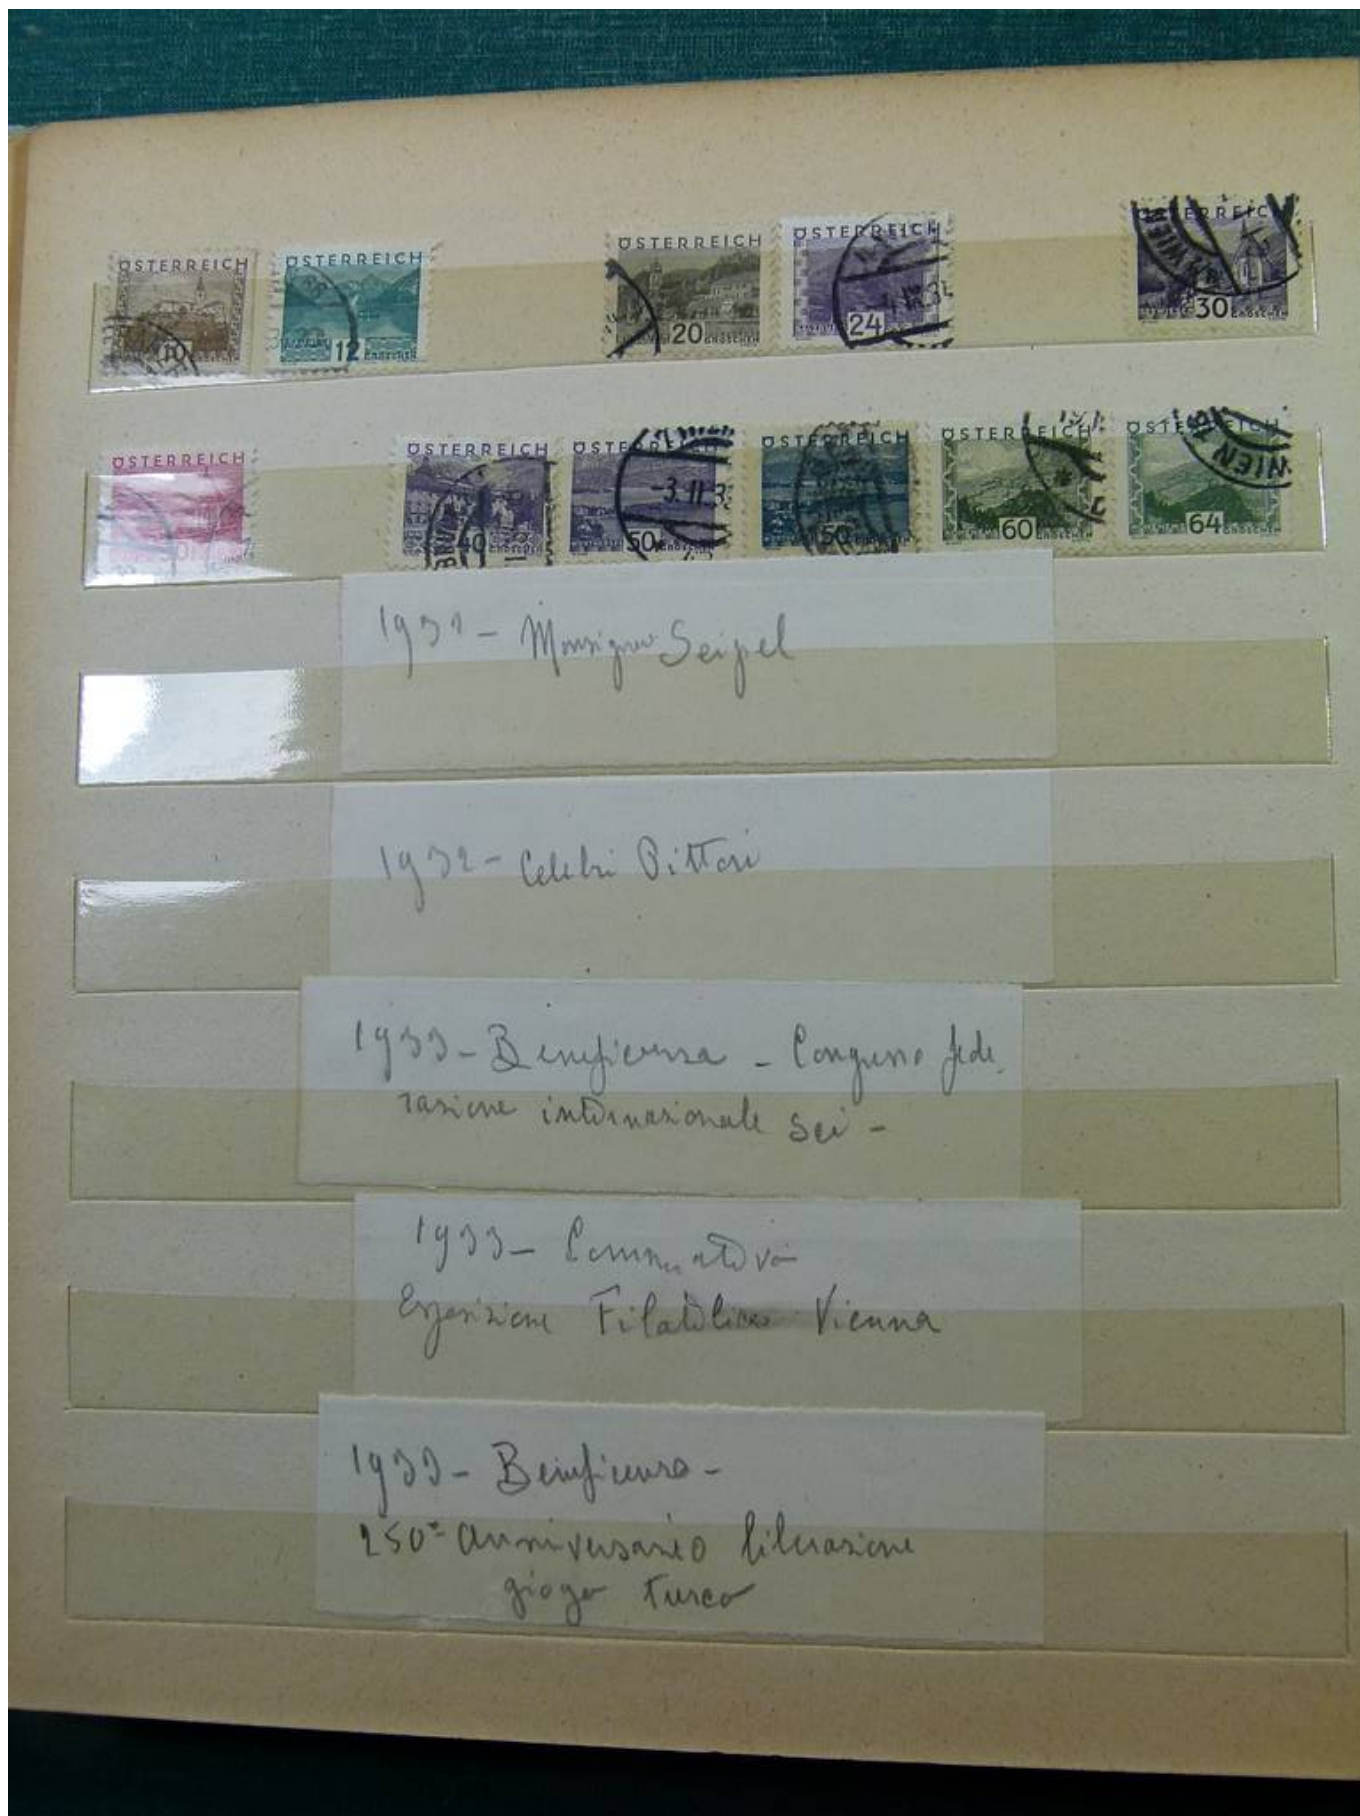 ÖSTERREICH 10
ÖSTERREICH 12 GROSCHEN
ÖSTERREICH 20 GROSCHEN
ÖSTERREICH 24
ÖSTERREICH 30 GROSCHEN
WIEN
ÖSTERREICH
ÖSTERREICH 40 GROSCHEN
ÖSTERREICH 50 GROSCHEN
-3.II.3
ÖSTERREICH 50
ÖSTERREICH 60 GROSCHEN
ÖSTERREICH 64 GROSCHEN
WIEN
1932 - Monsignor Seipel
1932 - Celebri Pittori
1933 - Beneficenza - Congresso fede
razione internazionale sci -
1933 - Commemorativa
Esposizione Filatelica Vienna
1933 - Beneficenza -
250° anniversario liberazione
giogo turco